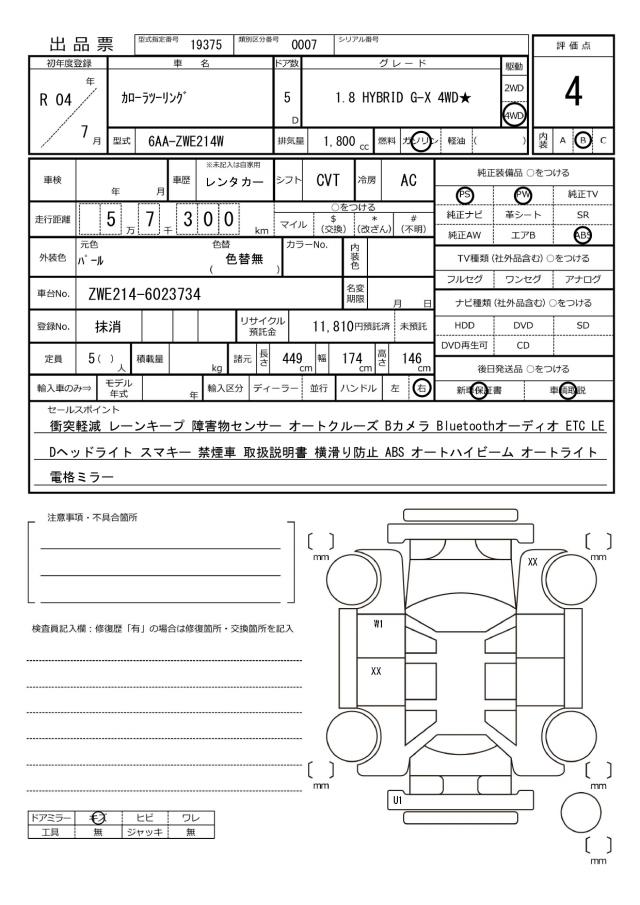 出品票 型式指定番号 19375 類別区分番号 0007 シリアル番号
評価点
4
初年度登録 車名 ドア数 グレード 駆動
R 04 年 7 月 カローラツーリング 5 D 1.8 HYBRID G-X 4WD★ 2WD 4WD
型式 6AA-ZWE214W 排気量 1,800 cc 燃料 ガソリン 軽油 ( ) 内装 A B C
車検 年 月 車歴 ※未記入は自家用 レンタカー シフト CVT 冷房 AC
走行距離 5 万 7 千 300 km ○をつける マイル $ (交換) * (改ざん) # (不明)
外装色 元色 パール 色替 ( 色替無 ) カラーNo. 内装色
車台No. ZWE214-6023734 名変期限 月 日
登録No. 抹消 リサイクル預託金 11,810円預託済 未預託
定員 5( )人 積載量 kg 諸元 長さ 449cm 幅 174cm 高さ 146cm
輸入車のみ⇒ モデル年式 年 輸入区分 ディーラー 並行 ハンドル 左 右
純正装備品 ○をつける
PS PW 純正TV
純正ナビ 革シート SR
純正AW エアB ABS
TV種類 (社外品含む) ○をつける
フルセグ ワンセグ アナログ
ナビ種類 (社外品含む) ○をつける
HDD DVD SD
DVD再生可 CD
後日発送品 ○をつける
新車保証書 車輌取説
セールスポイント
衝突軽減 レーンキープ 障害物センサー オートクルーズ Bカメラ Bluetoothオーディオ ETC LE
Dヘッドライト スマキー 禁煙車 取扱説明書 横滑り防止 ABS オートハイビーム オートライト
電格ミラー
注意事項・不具合箇所
検査員記入欄：修復歴「有」の場合は修復箇所・交換箇所を記入
[ ] mm
[ ] mm
XX
W1
XX
[ ] mm
[ ] mm
U1
[ ] mm
ドアミラー キズ ヒビ ワレ
工具 無 ジャッキ 無